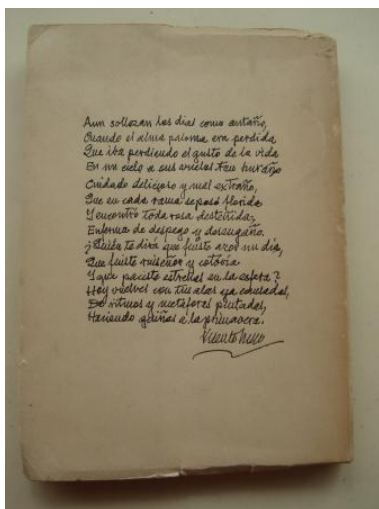 Aun sollozan los dias como antaño,
Cuando el alma paloma era perdida
Que iba perdiendo el gusto de la vida
En un cielo a sus anielos tan huraño
Cuidado delicioso y mal extraño,
Que en cada rama se posó florida
Y encontró toda rosa desteñida,
Enferma de despego y desengaño.
¿Quién te dirá que fuiste azor un dia,
Que fuiste ruiseñor y cotovía
Y que paciste estrellas en la esfera?
Hoy vuelves con tus alas ya cansadas,
De ritmos y metáforas pintadas,
Haciendo guiños a la primavera.